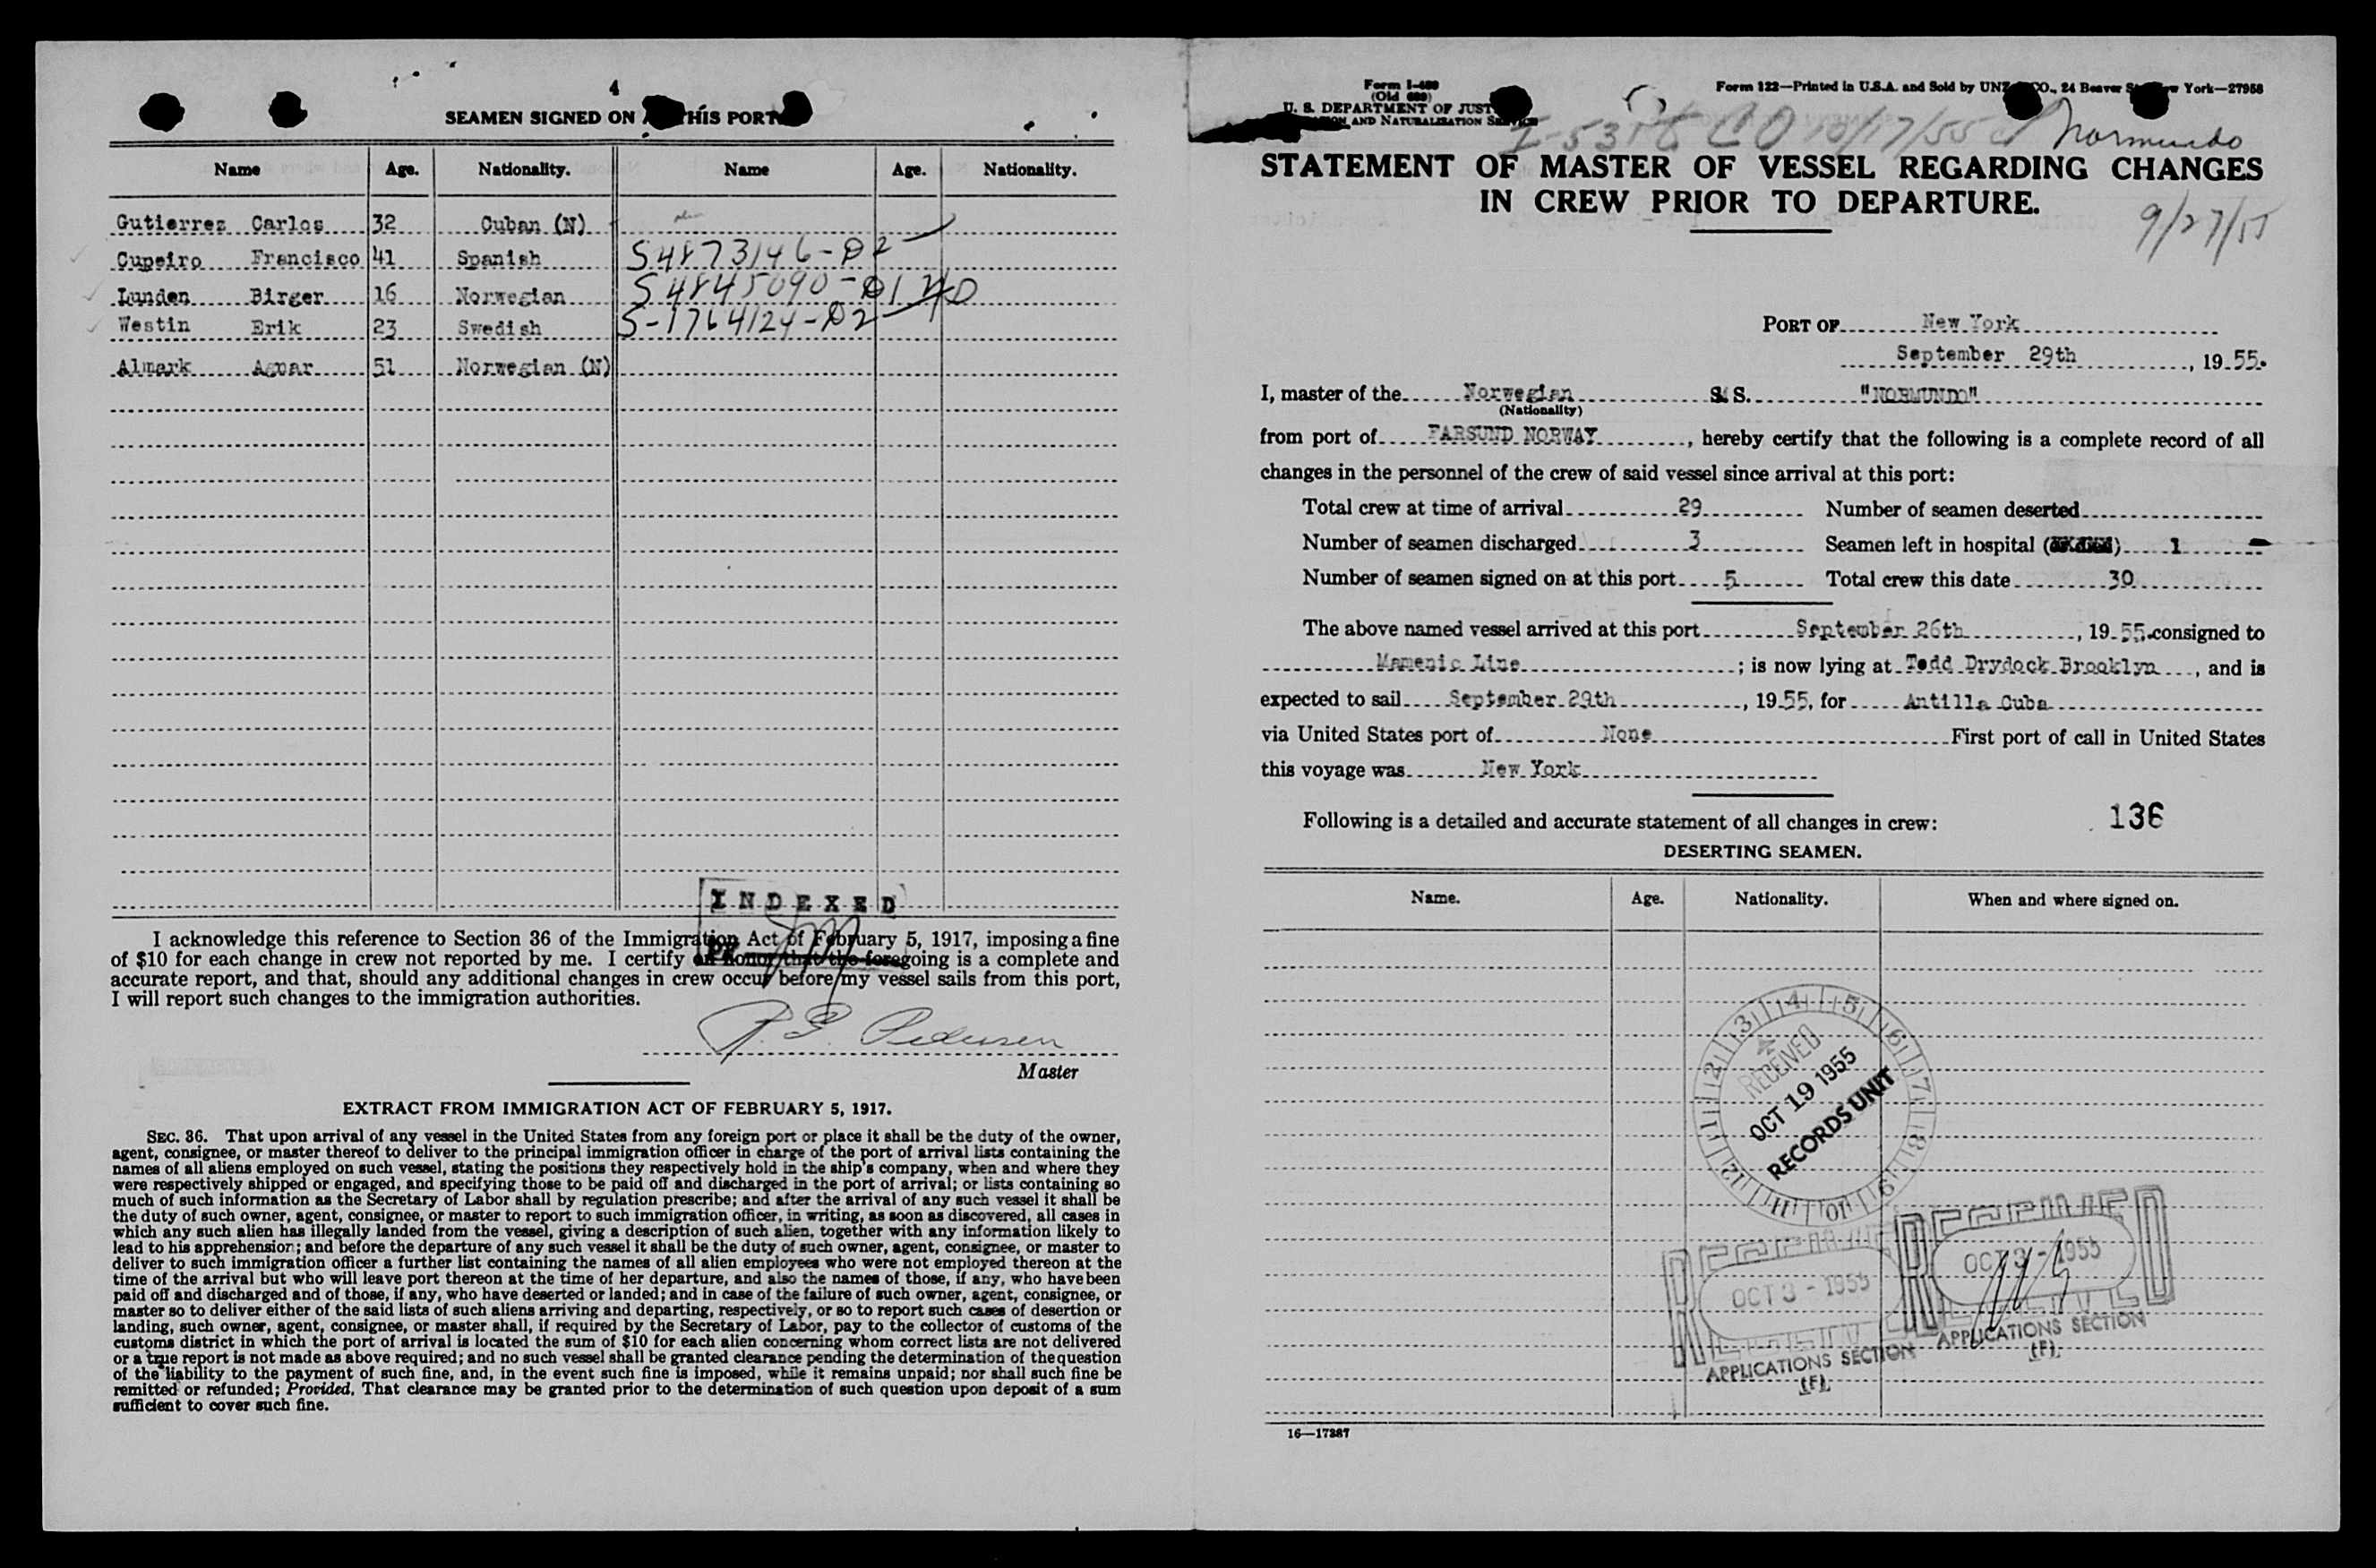 4
SEAMEN SIGNED ON THIS PORT
Name Age. Nationality. Name Age. Nationality.
Gutierrez Carlos 32 Cuban (N)
Cupeiro Francisco 41 Spanish S4873146-D2
Lunden Birger 16 Norwegian S4845090-D1
Westin Erik 23 Swedish S-1764124-D2
Almark Agnar 51 Norwegian (N)
INDEXED
BY
I acknowledge this reference to Section 36 of the Immigration Act of February 5, 1917, imposing a fine
of $10 for each change in crew not reported by me. I certify on honor that the foregoing is a complete and
accurate report, and that, should any additional changes in crew occur before my vessel sails from this port,
I will report such changes to the immigration authorities.
Pedersen
Master
EXTRACT FROM IMMIGRATION ACT OF FEBRUARY 5, 1917.
SEC. 36. That upon arrival of any vessel in the United States from any foreign port or place it shall be the duty of the owner,
agent, consignee, or master thereof to deliver to the principal immigration officer in charge of the port of arrival lists containing the
names of all aliens employed on such vessel, stating the positions they respectively hold in the ship's company, when and where they
were respectively shipped or engaged, and specifying those to be paid off and discharged in the port of arrival; or lists containing so
much of such information as the Secretary of Labor shall by regulation prescribe; and after the arrival of any such vessel it shall be
the duty of such owner, agent, consignee, or master to report to such immigration officer, in writing, as soon as discovered, all cases in
which any such alien has illegally landed from the vessel, giving a description of such alien, together with any information likely to
lead to his apprehension; and before the departure of any such vessel it shall be the duty of such owner, agent, consignee, or master to
deliver to such immigration officer a further list containing the names of all alien employees who were not employed thereon at the
time of the arrival but who will leave port thereon at the time of her departure, and also the names of those, if any, who have been
paid off and discharged and of those, if any, who have deserted or landed; and in case of the failure of such owner, agent, consignee, or
master so to deliver either of the said lists of such aliens arriving and departing, respectively, or so to report such cases of desertion or
landing, such owner, agent, consignee, or master shall, if required by the Secretary of Labor, pay to the collector of customs of the
customs district in which the port of arrival is located the sum of $10 for each alien concerning whom correct lists are not delivered
or a true report is not made as above required; and no such vessel shall be granted clearance pending the determination of the question
of the liability to the payment of such fine, and, in the event such fine is imposed, while it remains unpaid; nor shall such fine be
remitted or refunded; Provided, That clearance may be granted prior to the determination of such question upon deposit of a sum
sufficient to cover such fine.
Form I-489
(Old 689)
U. S. DEPARTMENT OF JUST
AND NATURALIZATION SERVICE
Form 122—Printed in U.S.A. and Sold by UNZ CO., 24 Beaver St. New York—27958
10/17/55 Normundo
STATEMENT OF MASTER OF VESSEL REGARDING CHANGES
IN CREW PRIOR TO DEPARTURE.
9/27/55
PORT OF New York
September 29th, 19 55.
I, master of the Norwegian S. "NORMUNDO"
(Nationality)
from port of FARSUND NORWAY, hereby certify that the following is a complete record of all
changes in the personnel of the crew of said vessel since arrival at this port:
Total crew at time of arrival 29 Number of seamen deserted
Number of seamen discharged 3 Seamen left in hospital (or died) 1
Number of seamen signed on at this port 5 Total crew this date 30
The above named vessel arrived at this port September 26th, 19 55. consigned to
Mamenic Line; is now lying at Todd Drydock Brooklyn, and is
expected to sail September 29th, 19 55, for Antilla Cuba
via United States port of None First port of call in United States
this voyage was New York
Following is a detailed and accurate statement of all changes in crew: 136
DESERTING SEAMEN.
Name. Age. Nationality. When and where signed on.
1 2 3 4 5 6 7 8 9 10 11 12
RECEIVED
OCT 19 1955
RECORDS UNIT
RECEIVED
OCT 3 - 1955
APPLICATIONS SECTION
(F)
RECEIVED
OCT 3 - 1955
APPLICATIONS SECTION
(F)
16—17387